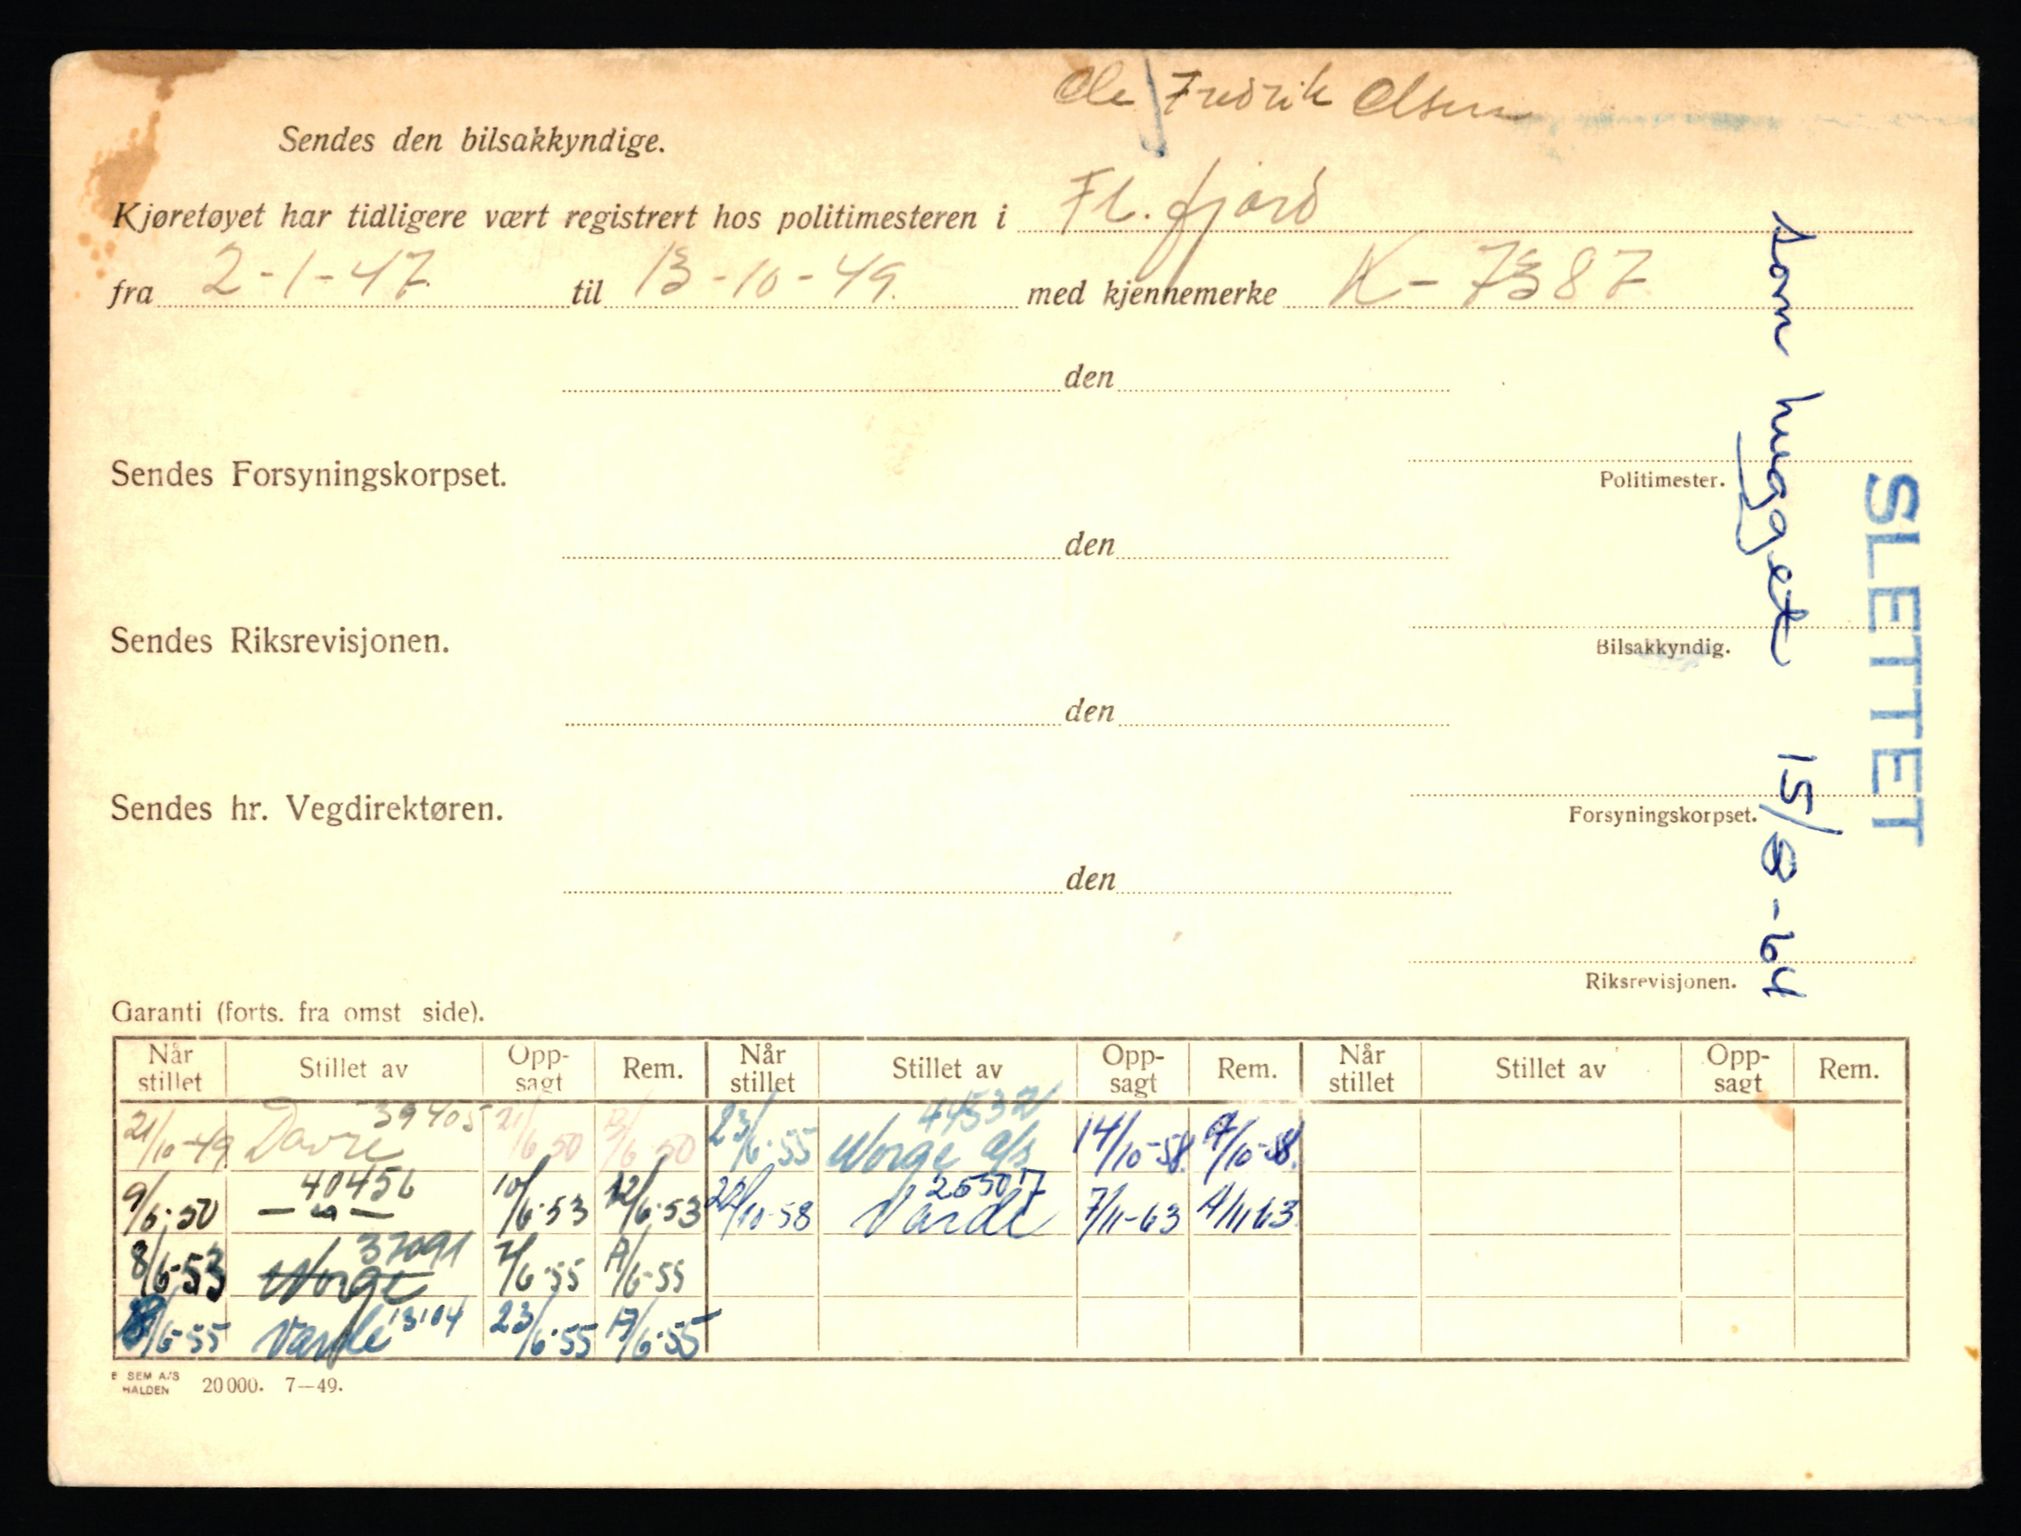 Ole Fredrik Olsen
Sendes den bilsakkyndige.
Kjøretøyet har tidligere vært registrert hos politimesteren i Fl. fjord
fra 2-1-47. til 13-10-49. med kjennemerke K-7387
den
Sendes Forsyningskorpset.
Politimester.
den
Sendes Riksrevisjonen.
Bilsakkyndig.
den
Sendes hr. Vegdirektøren.
Forsyningskorpset.
den
Riksrevisjonen.
som hugget 15/8-64
SLETTET
Garanti (forts. fra omst side).
Når stillet Stillet av Opp-sagt Rem. Når stillet Stillet av Opp-sagt Rem. Når stillet Stillet av Opp-sagt Rem.
21/10-49 Davre 39405 21/6 50 /6-50 23/6-55 Norge a/s 44532 14/10-58. A/10-58.
9/6-50 — " — 40456 10/6-53 12/6-53 /10-58 Varde 255017 7/11-63 A/11 63
8/6-53 Norge 37091 7/6-55 A/6-55
8/6-55 Varde 13104 23/6-55 A/6-55
E SEM A/S
HALDEN 20000. 7—49.